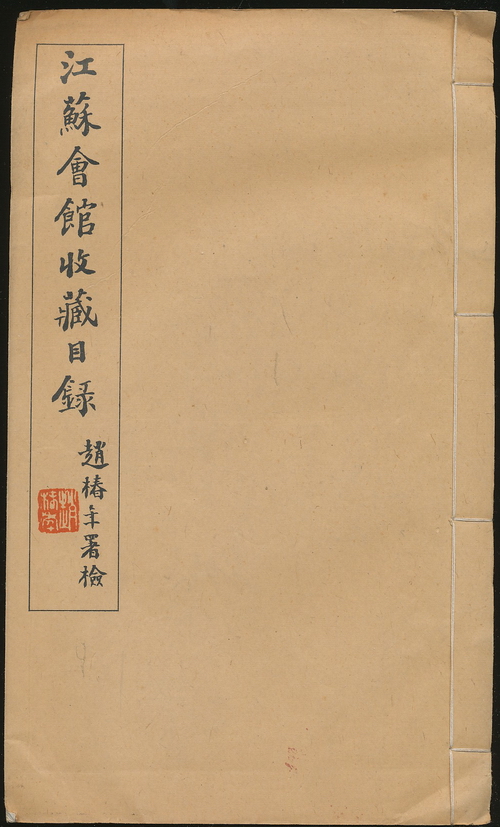 江蘇會館收藏目録
趙椿年署檢